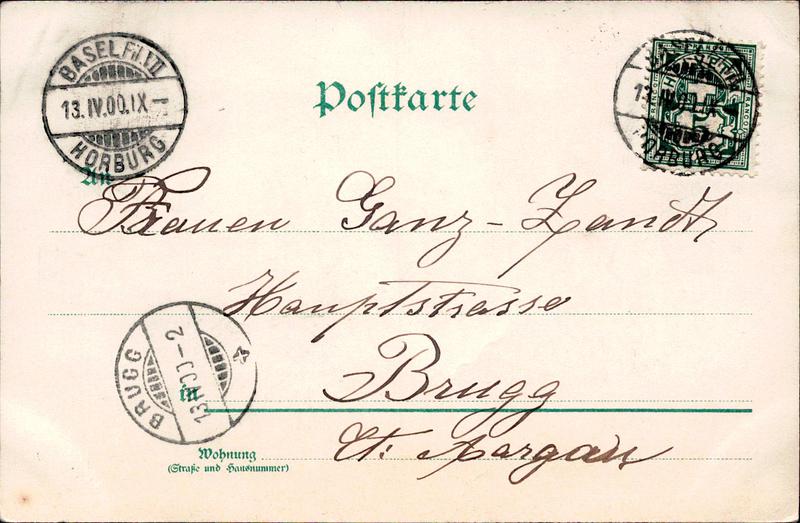 BASEL Fil. II
13.IV.00.IX-
HORBURG
Postkarte
FRANCO
5
HORBURG
An
Frauen Ganz-Zandt
Hauptstrasse
BRUGG
13.IV.00-2
in
Brugg
Ct. Aargau
Wohnung
(Straße und Hausnummer)